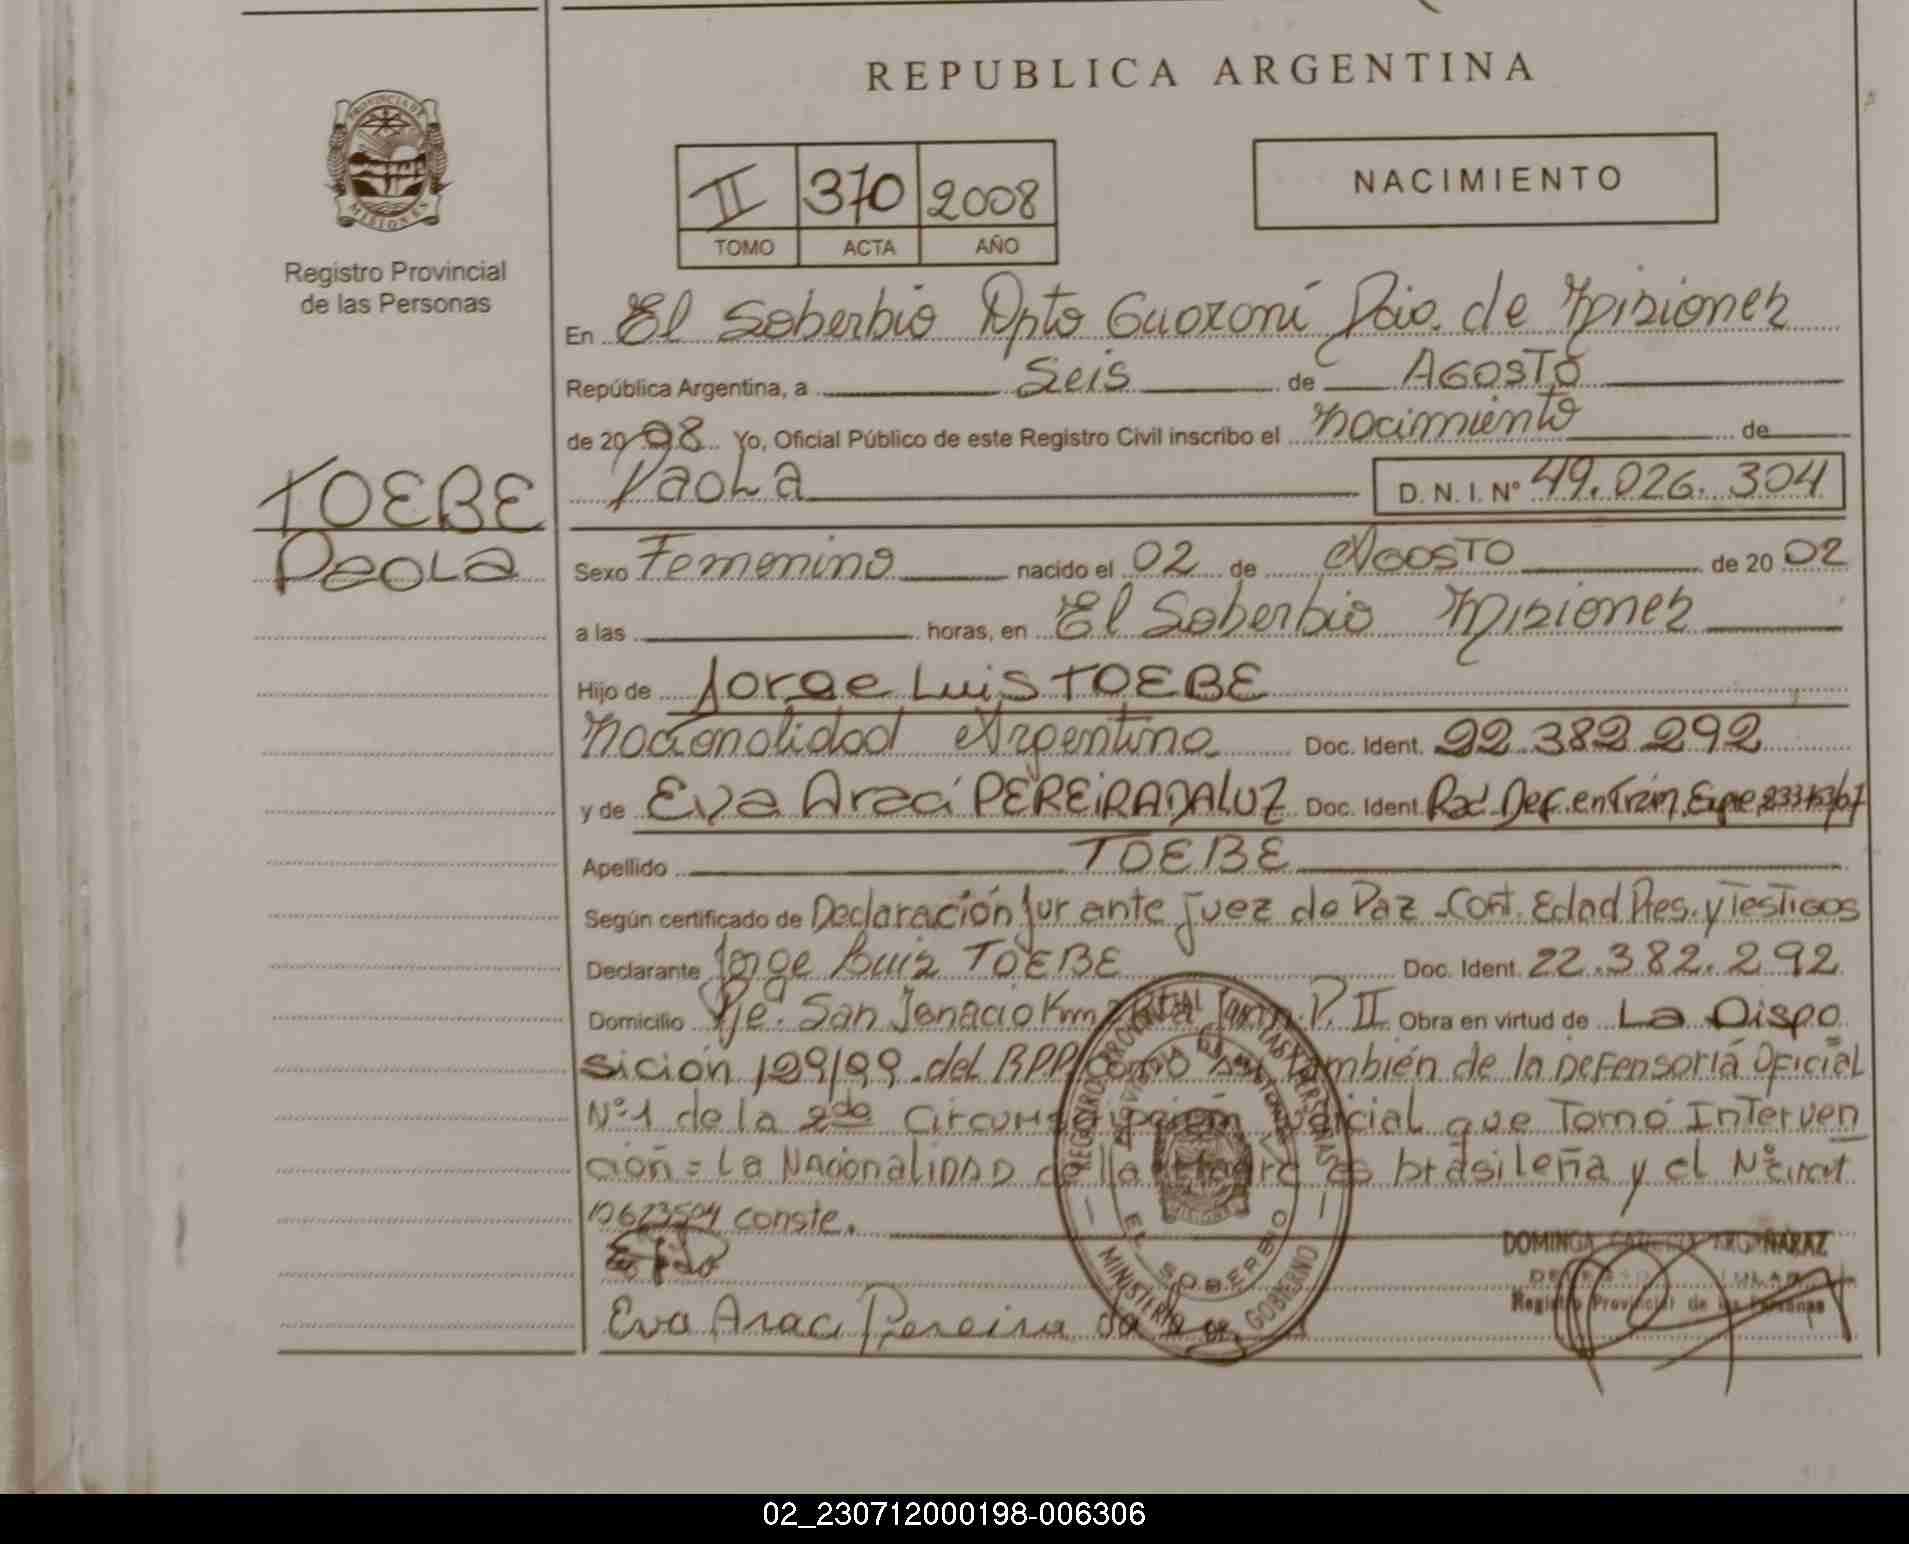 REPUBLICA ARGENTINA
PROVINCIA DE
MISIONES
Registro Provincial
de las Personas
II 370 2008
TOMO ACTA AÑO
NACIMIENTO
En El Soberbio Dpto Guarani Pcia. de Misiones
República Argentina, a Seis de AGOSTO
de 2008 Yo, Oficial Público de este Registro Civil inscribo el nacimiento de
PaoLa D. N. I. Nº 49.026.304
TOEBE
PaoLa
Sexo Femenino nacido el 02 de AGOSTO de 20 02
a las horas, en El Soberbio Misiones
Hijo de Jorge Luis TOEBE
Nacionalidad Argentina Doc. Ident. 22.382.292
y de Eva Araci PEREIRA DALUZ Doc. Ident. Rad. Def. en Trám. Expe
Apellido TOEBE
Según certificado de Declaración Jur ante Juez de Paz - Cert. Edad Pres. y Testigos
Declarante Jorge Luis TOEBE Doc. Ident. 22.382.292
Domicilio Pje. San Ignacio Km P. II Obra en virtud de La Dispo
sición 129/99 del RPP como también de la Defensoría Oficial
Nº 1 de la 2da Circunscripción Judicial que Tomó Interven
ción = La Nacionalidad de la Madre es brasileña y el Nº
conste.
Eva Araci Pereira da Luz
REGISTRO PROVINCIAL DE LAS PERSONAS
MINISTERIO DE GOBIERNO
PROVINCIA DE MISIONES
EL SOBERBIO
DOMINGA
Registro Provincial de las Personas
02_230712000198-006306